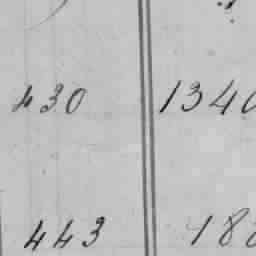 430 1340
443 188